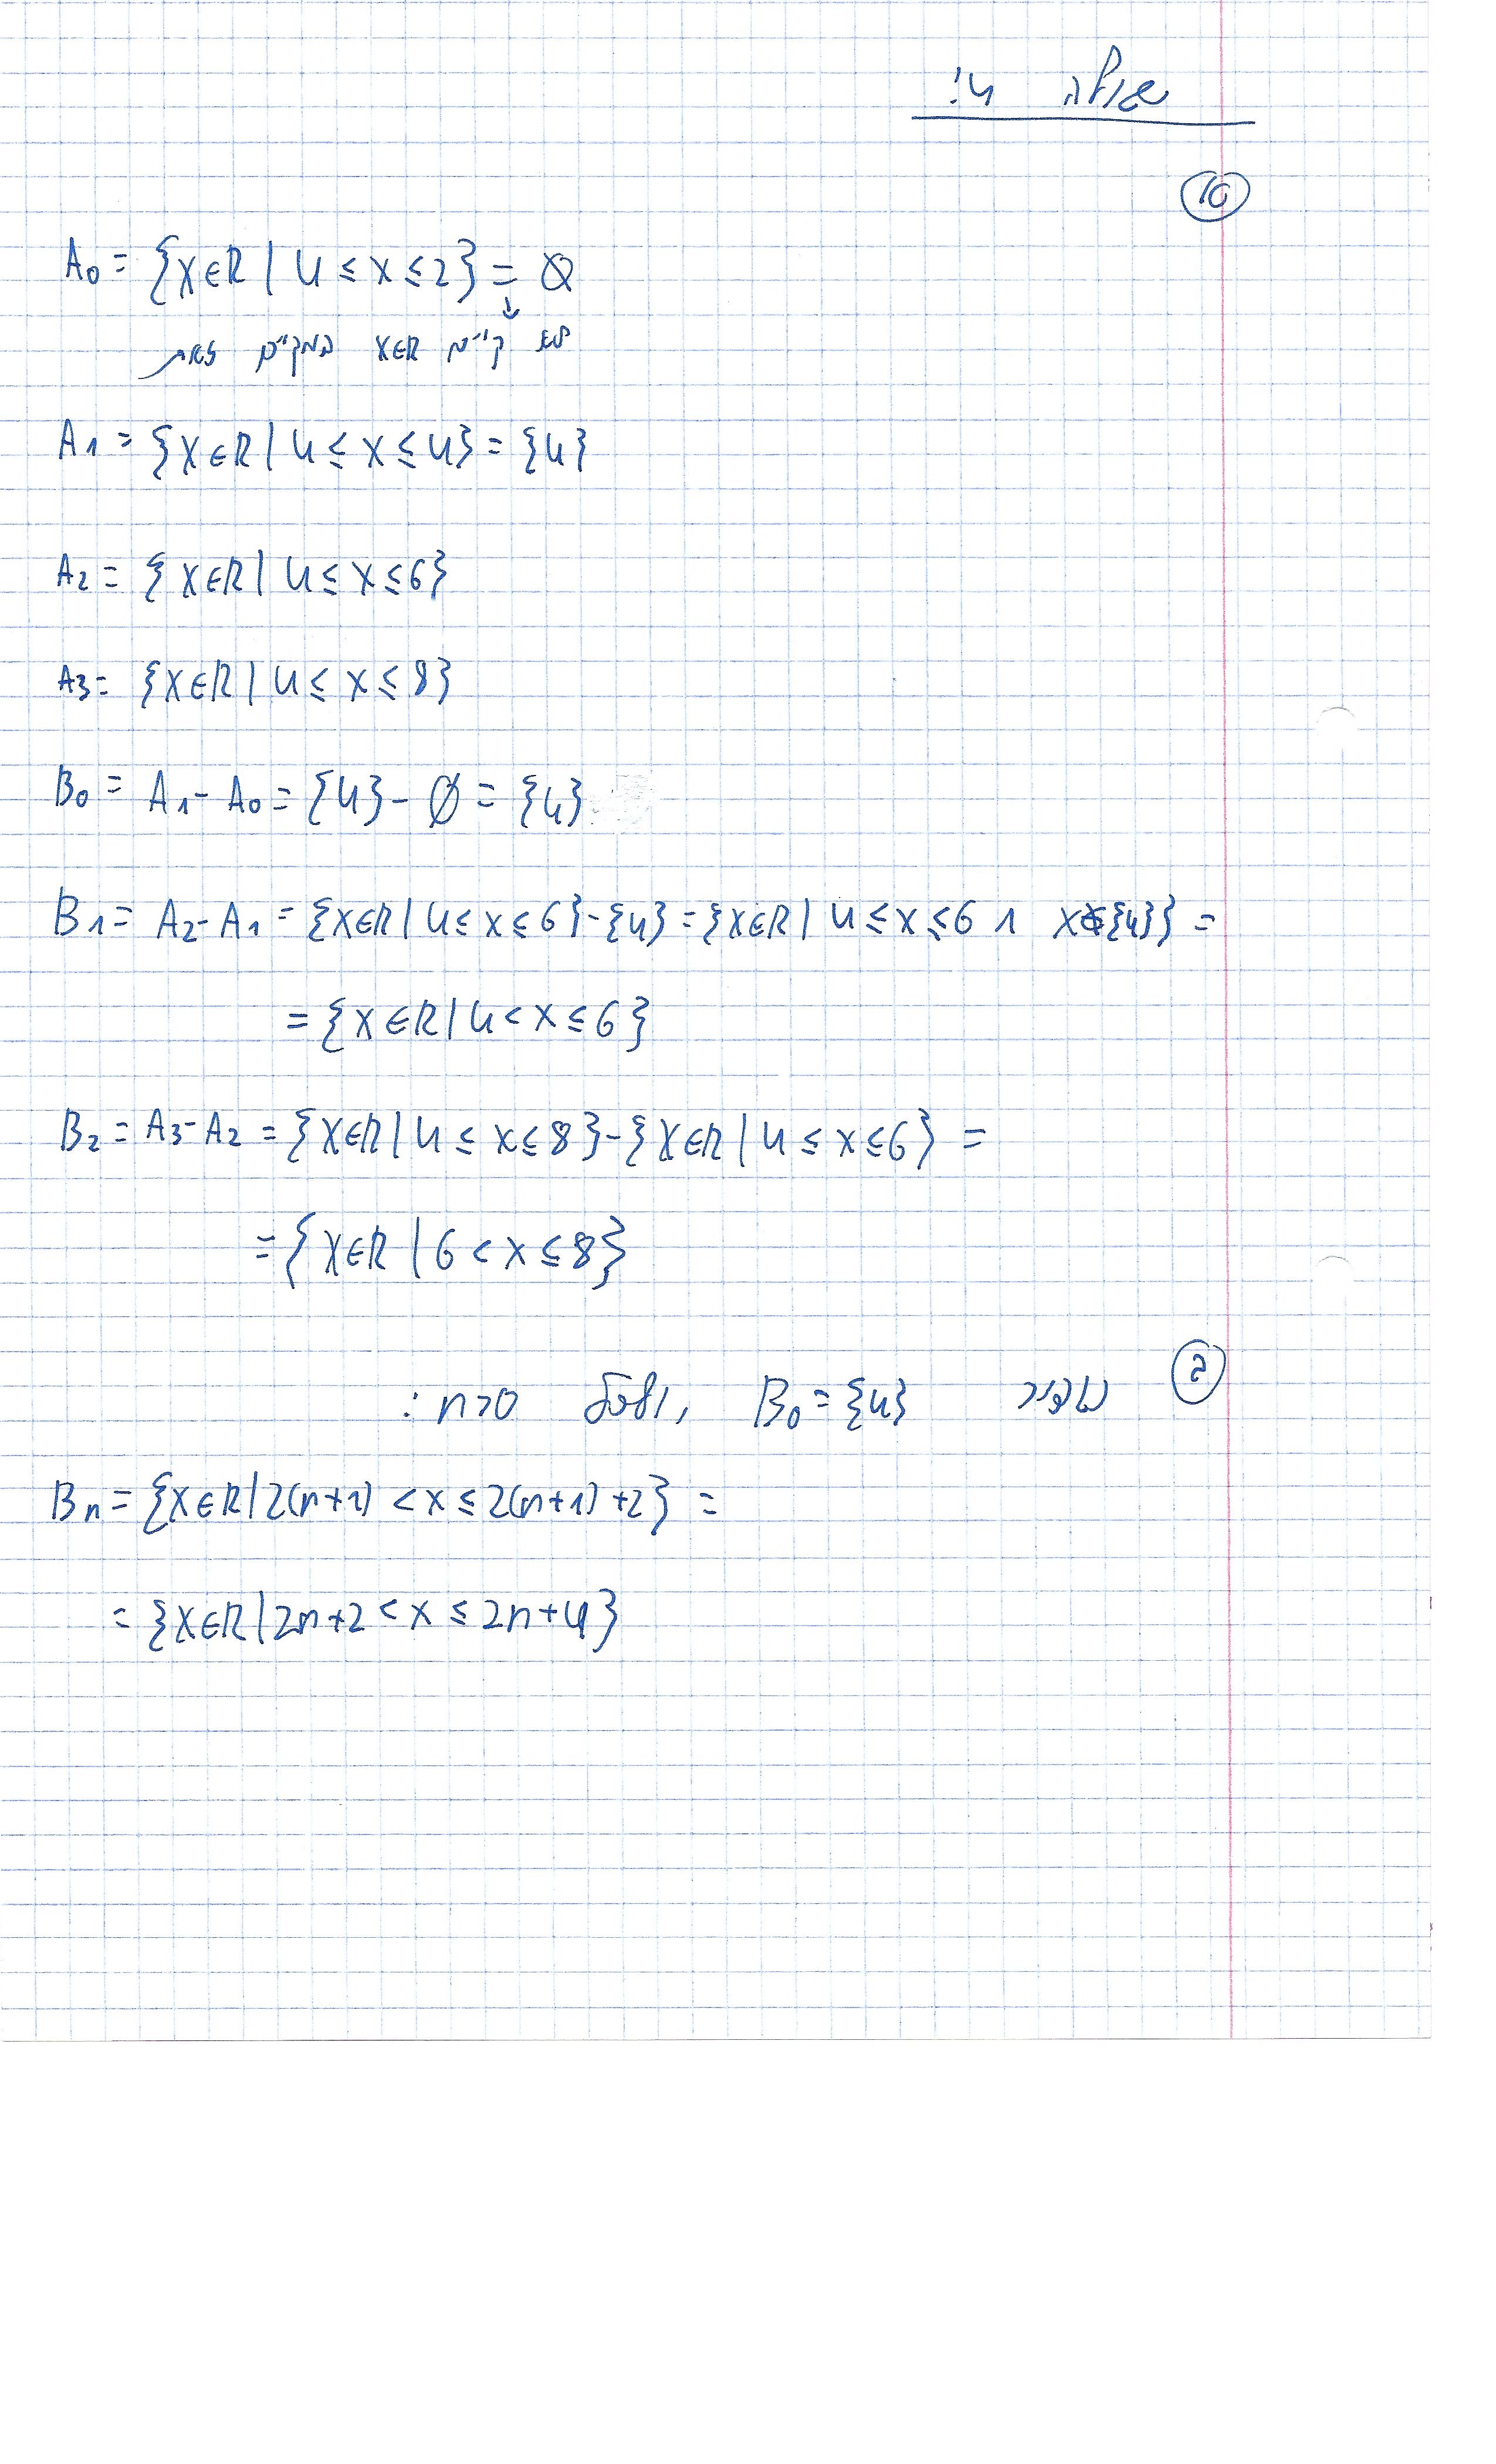 שאלה 4:
א
A₀ = {x∈R | 4 ≤ x ≤ 2} = ∅
↓
לא קיים x∈R המקיים זאת
A₁ = {x∈R | 4 ≤ x ≤ 4} = {4}
A₂ = {x∈R | 4 ≤ x ≤ 6}
A₃ = {x∈R | 4 ≤ x ≤ 8}
B₀ = A₁ - A₀ = {4} - ∅ = {4}
B₁ = A₂ - A₁ = {x∈R | 4 ≤ x ≤ 6} - {4} = {x∈R | 4 ≤ x ≤ 6 ∧ x∉{4}} =
= {x∈R | 4 < x ≤ 6}
B₂ = A₃ - A₂ = {x∈R | 4 ≤ x ≤ 8} - {x∈R | 4 ≤ x ≤ 6} =
= {x∈R | 6 < x ≤ 8}
ב B₀ = {4} , ולכל n>0 :
Bₙ = {x∈R | 2(n+1) < x ≤ 2(n+1)+2} =
= {x∈R | 2n+2 < x ≤ 2n+4}